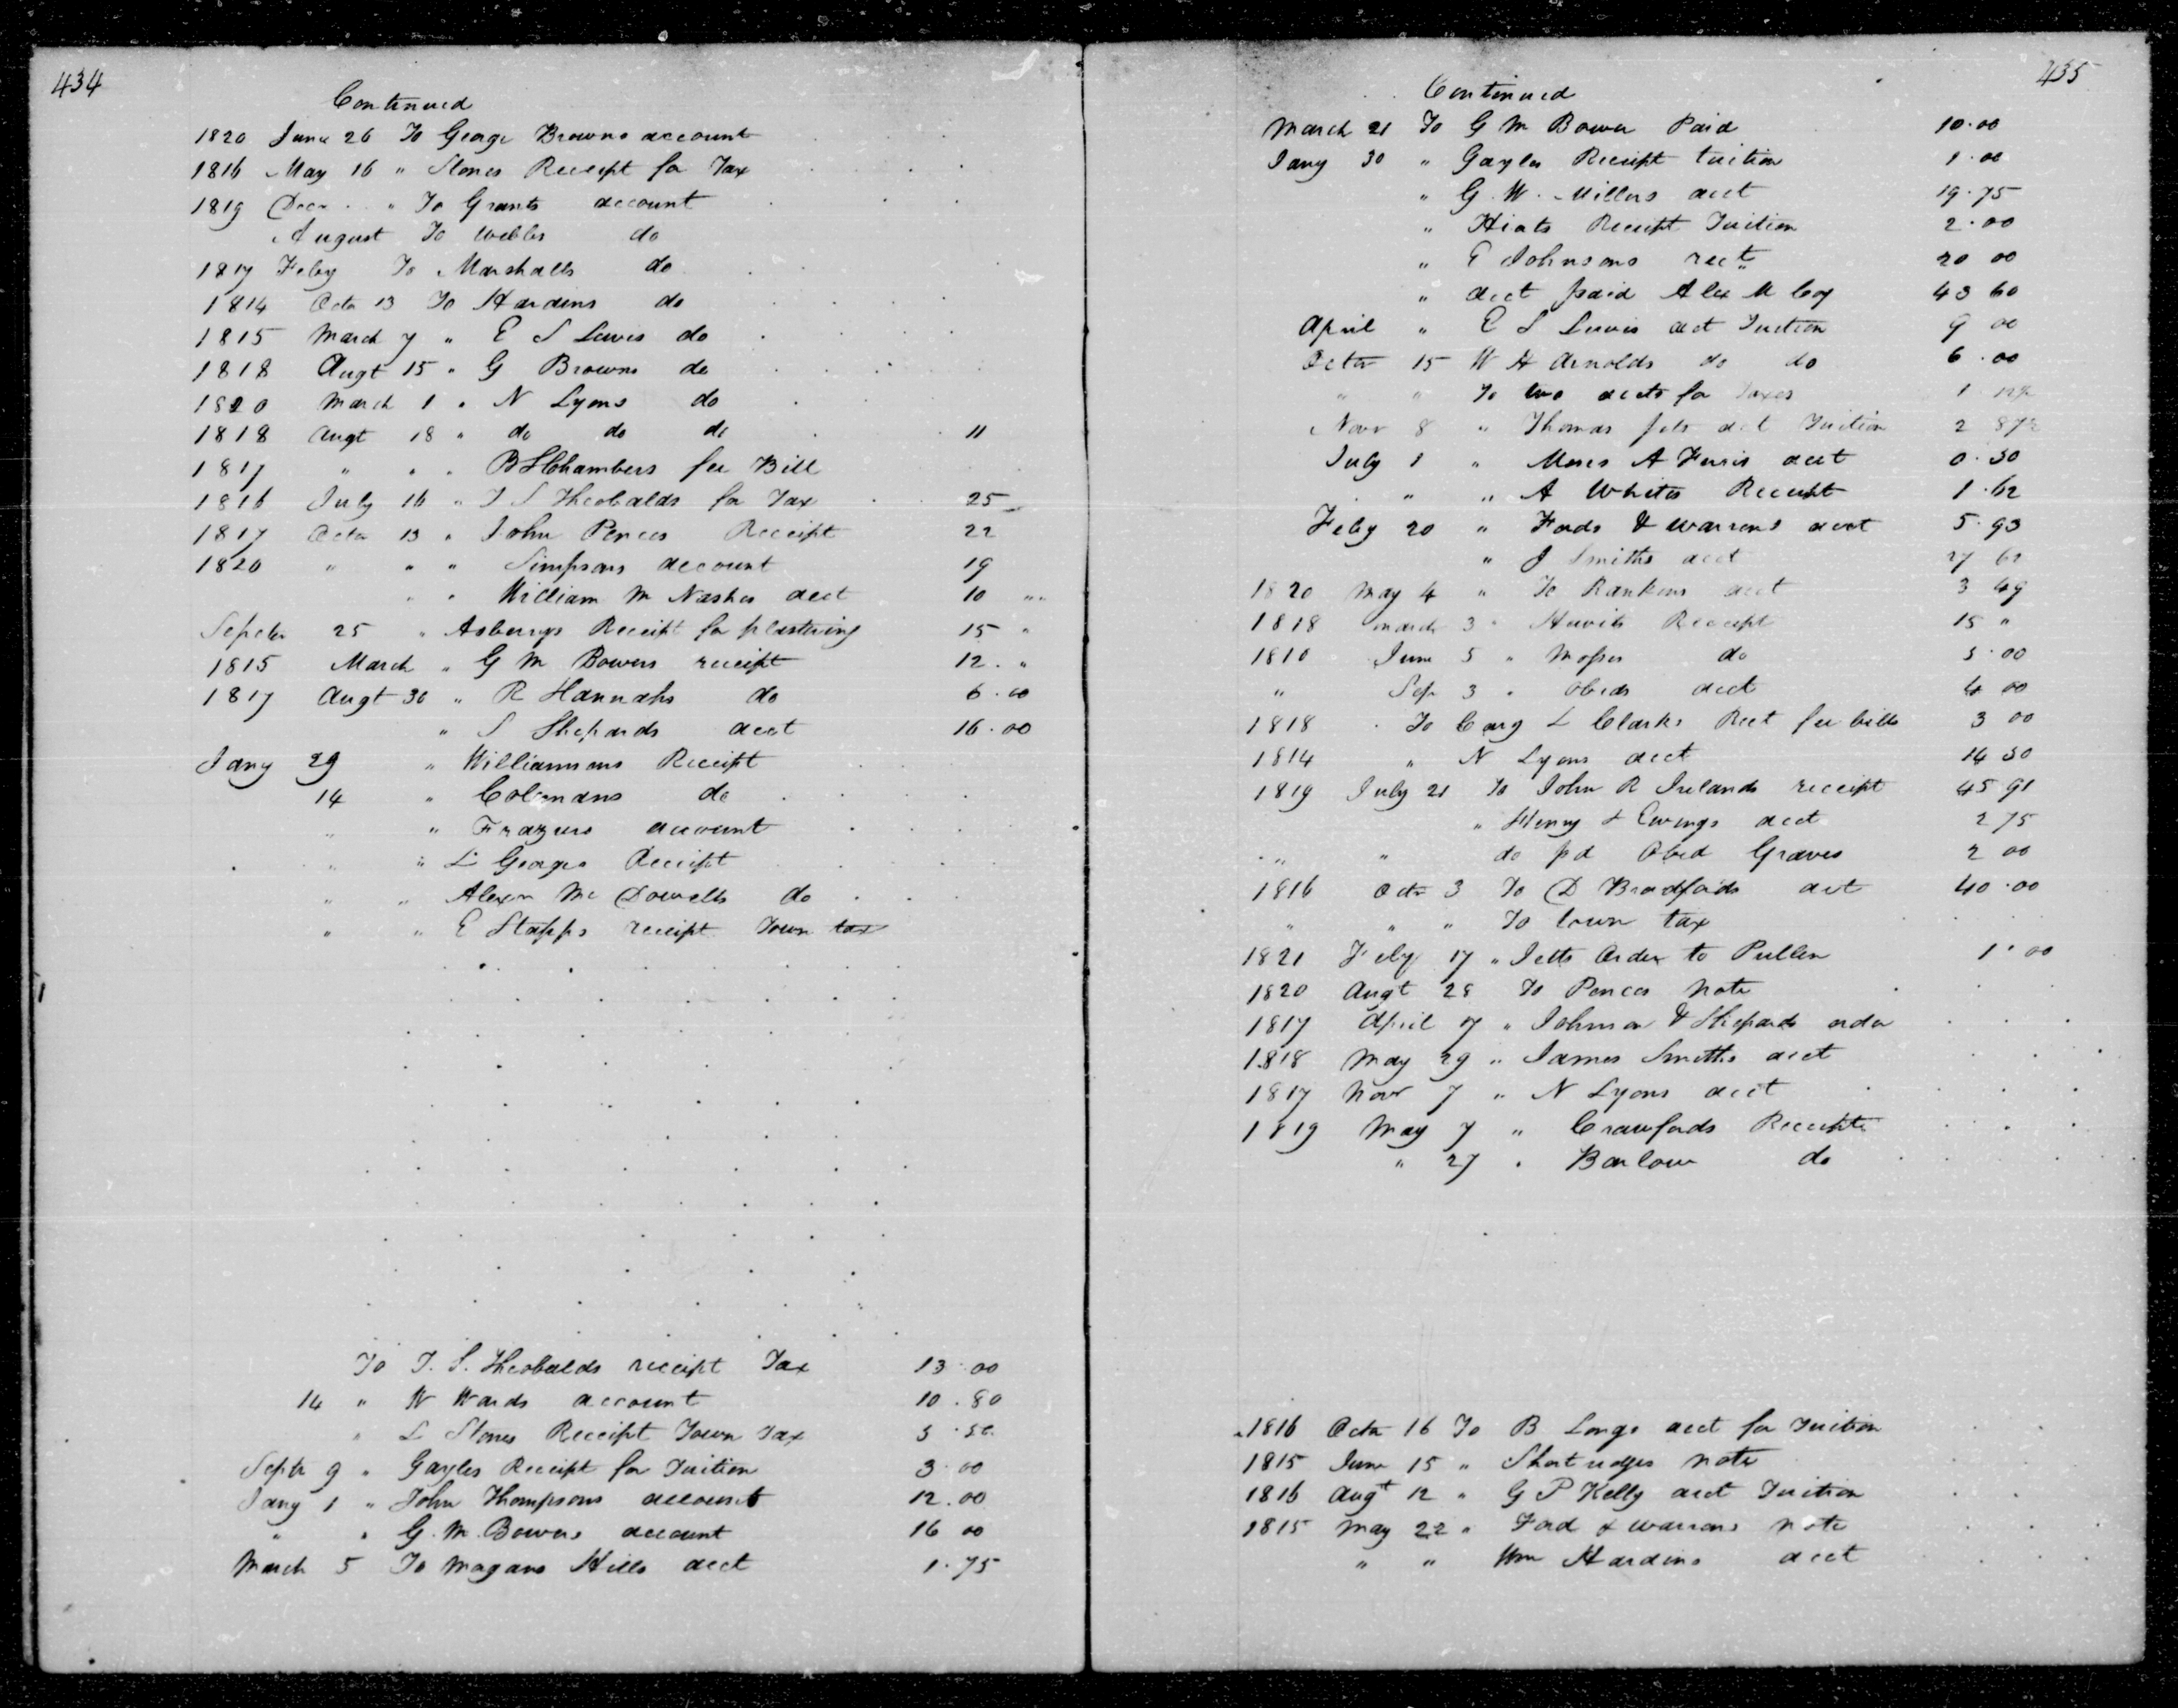 434
Continued
1820 June 26 To George Browns account
1816 May 16 " Stones Receipt for Tax
1819 Decr " To Grants account
August To Webbs do
1817 Feby To Marshalls do
1814 Octr 13 To Hardins do
1815 March 7 " E S Lewis do
1818 Augt 15 " G Browns do
1820 March 1 " N Lyons do
1818 Augt 18 " do do do 11
1817 " " " B S Chambers fee Bill
1816 July 16 " T S Theobalds for Tax 25
1817 Octr 13 " John Pences Receipt 22
1820 " " " Simpsons account 19
" " William M Nashes acct 10 "
Septr 25 " Asberrys Receipt for plastering 15 "
1815 March " G M Bowers receipt 12 . "
1817 Augt 30 " R Hannahs do 6.00
" S Shepards acct 16.00
Jany 29 " Williamsons Receipt
14 " Colemans do
" " Frazurs account
" " L Georges Receipt
" " Alexr Mc Dowells do
" " E Stapps receipt Town tax
To T. S. Theobalds receipt Tax 13.00
14 " W Wards account 10.80
" L Stones Receipt Town Tax 5.50
Septr 9 " Gayles Receipt for Tuition 3.00
Jany 1 " John Thompsons account 12.00
" " G. M. Bowers account 16 00
March 5 To Magans Hills acct 1.75
435
Continued
March 21 To G M Bower Paid 10.00
Jany 30 " Gayles Receipt tuition 1.00
" G. W. Millers acct 19.75
" Hiats Receipt Tuition 2.00
" E Johnsons rect 20 00
" acct paid Alex M Coy 43 60
April " E S Lewis acct Tuition 9 00
Octr 15 W H Arnolds do do 6.00
" " To two accts for Taxes 1
Novr 8 " Thomas acct Tuition 2 87½
July 1 " Moses A Faris acct 0.50
" " A Whites Receipt 1.62
Feby 20 " Fords & Warrens acct 5.93
" J Smiths acct 27 62
1820 May 4 " To Rankins acct 3 49
1818 March 3 " Hewits Receipt 15 "
1810 June 5 " Mosses do 5.00
" Sep 3 " Obeds acct 4 00
1818 . To Cary L Clarks Rect fee bills 3 00
1814 " N Lyons acct 14 50
1819 July 21 To John R Irelands receipt 45 91
" Henry & Ewings acct 2 75
" " do pd Obed Graves 2 00
1816 Octr 3 To D Bradfords act 40.00
" " " To town tax
1821 Feby 17 " Jetts Order to Pullen 1.00
1820 Augt 28 To Pences Note
1817 April 7 " Johnson & Shepards order
1818 May 29 " James Smiths acct
1817 Novr 7 " N Lyons acct
1819 May 7 " Crawfords Receipts
" 27 " Barlow do
1816 Octr 16 To B Longs acct for Tuition
1815 June 15 " note
1816 Augt 12 " G P Kelly acct Tuition
1815 May 22 " Ford & Warrens note
" " Wm Hardins acct